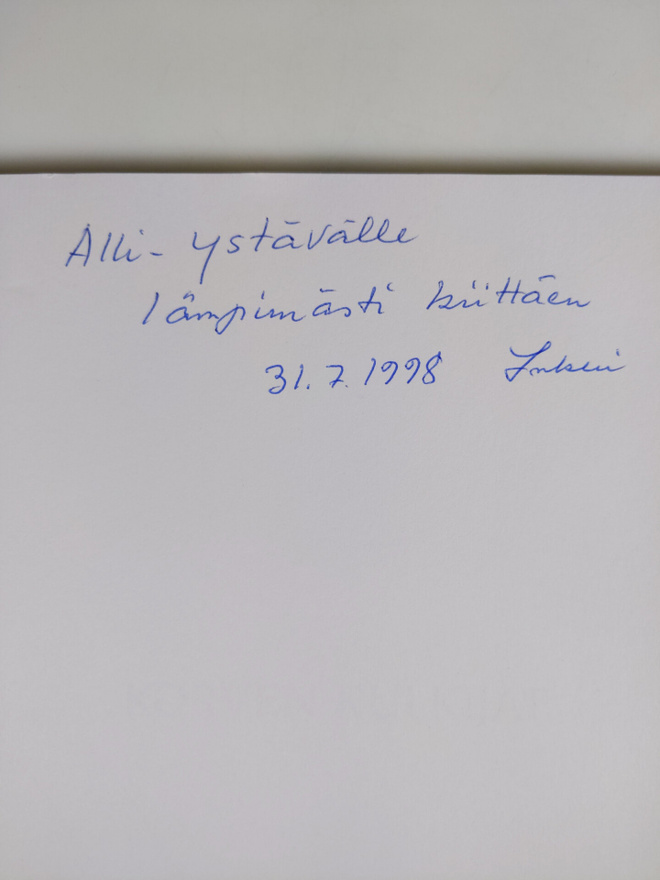 Alli- ystävälle
lämpimästi kiittäen
31.7.1998 Inkeri